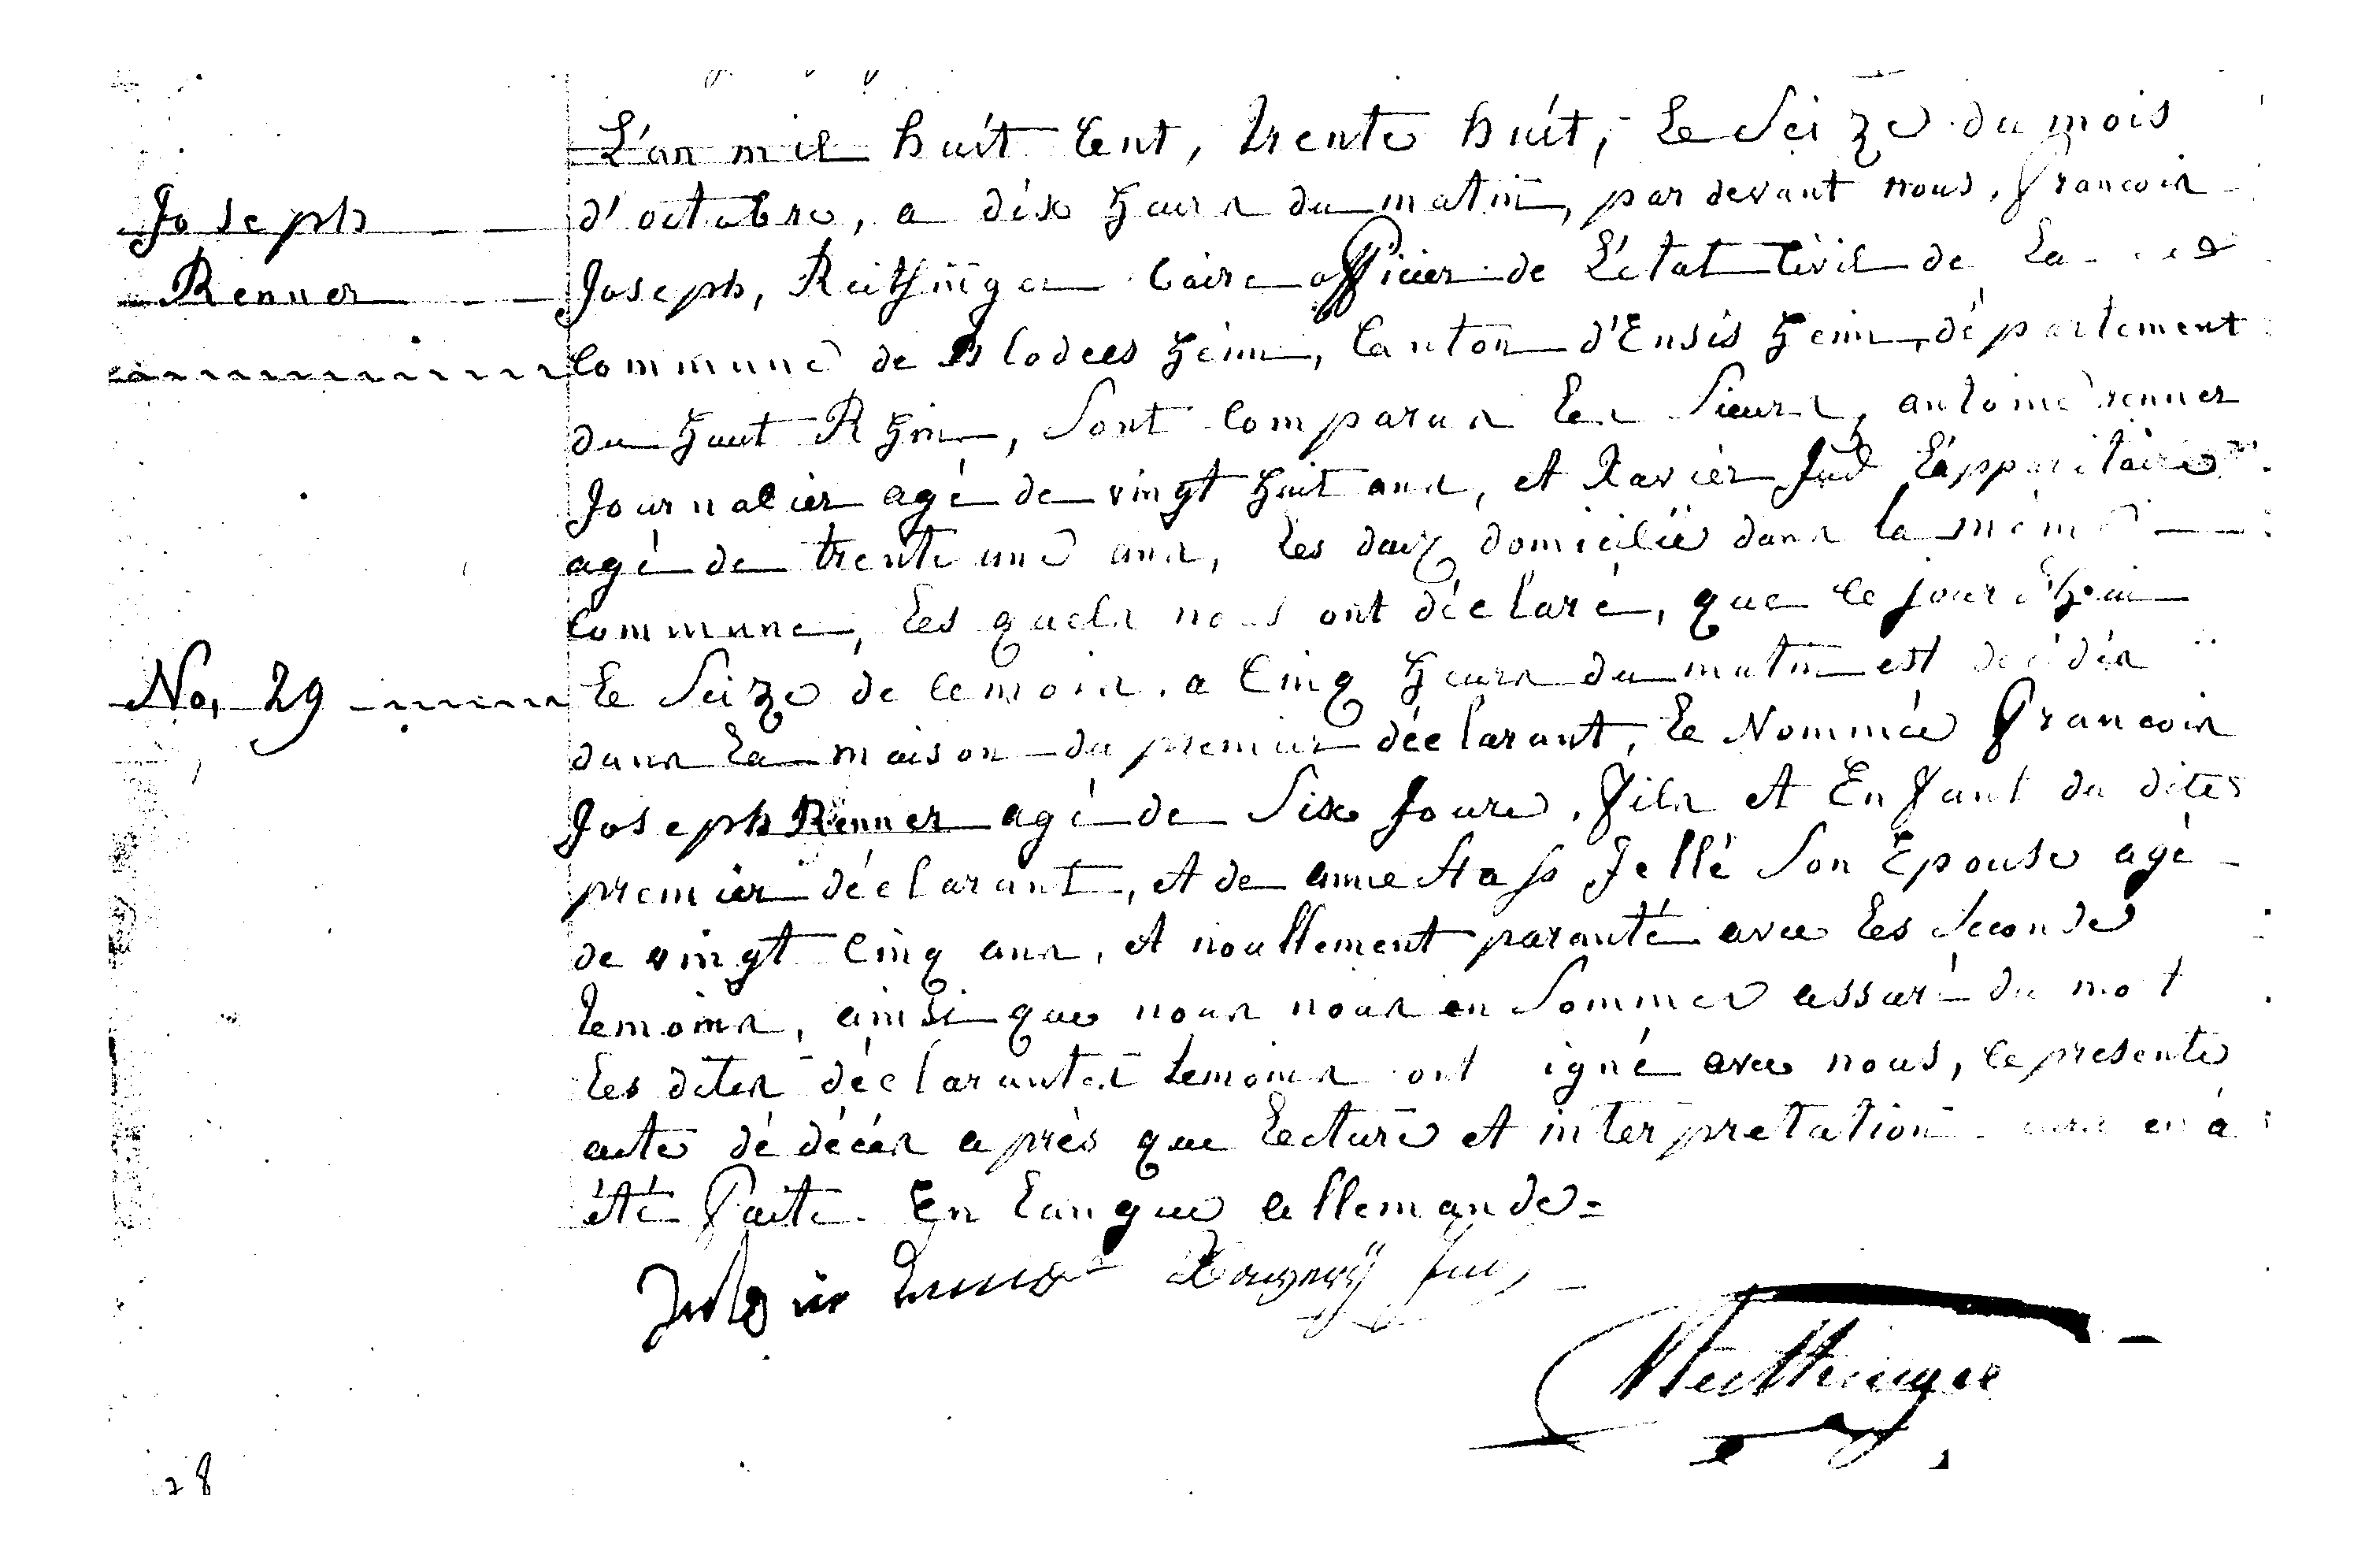 L'an mil huit Cent, trente huit, Le Seize du mois
Joseph
d'octobre, a dix heurs du matin, par devant nous, francois
Renner
Joseph, Reithinger Maire officier de L'état Civil de La
Commune de Blodelsheim, Canton d'Ensisheim, département
du haut Rhin, Sont Comparus Les Sieurs, antoine renner
Journalier agé de vingt huit ans, et Xavier Jud L'apparitaire
agé de trente une ans, Les deux domicilié dans la même
Commune, Les quels nous ont déclaré, que le jourd'hui
No, 29
Le Seize de ce mois, a Cinq heurs du matin est décédés
dans La maison du premier déclarant, Le Nommée francois
Joseph Renner agé de Six Jours, fils et Enfant du dites
premier déclarant, et de annestasse Jellé Son Epouse agé
de vingt Cinq ans, et noullement paranté avec Les Seconde
temoins, ainsi que nous nous en Sommes assuré du mot
Les dites déclarantes temoins ont igné avec nous, le presente
acte dé décés après que Lecture et interpretation en à
été faite En Langue allemande=
Reithinger